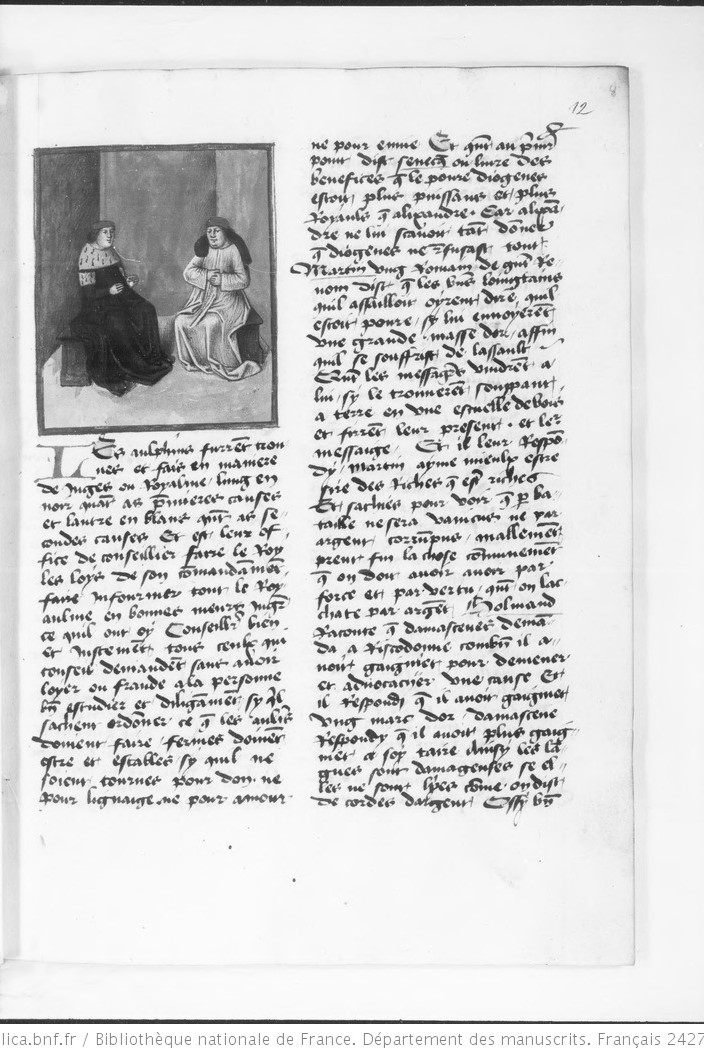 12
Les aulphins furrent trou
ues et fais en maniere
de Juges ou Royalme lung en
noir quāt as p̄mieres causes
et lautre en blanc qn̄t as se,
condes causes Et est leur of,
fice de conseillier faire le Roy
les loys de son cōmandāmēt
faire Infourmer tout le Roy,
aulme en bonnes meurs
ce quil ont oy Conseillr̄ bien
et Justemēt tous ceulx qui
conseil demandent sans auoir
loyer ou fraude a la personne
bn̄ estudier et diligāmēt sy qͥl
sachent ordoner ce q̄ les aultrs̄
doiuent faire fermes doiuēt
estre et estables sy quil ne
soient tournes pour don ne
pour lignaige ne pour amour
ne pour enuie Et qn̄t au p̄mr̄
point dist senecq̄ ou liure des
benefices q̄ le poure diogenes
estoit plus puissans et plus
Royauls q̄ alixandre. Car alixā,
dre ne lui scauoit tāt dōner
q̄ diogenes ne Refusast tout
Martin vng Romain de gn̄t Re,
nom dist q̄ les bn̄s loingtains
quil assailloit oyrent dire quil
estoit poure sy lui enuoyerēt
vne grande masse dor affin
quil se souffrist de lassault
Quāt les messagiers vindrēt a
lui sy le trouuerēt souppant
a terre en vne escuelle de bois
et firrēt leur present. et leʳ
messaige. Et il leur Respō,
dy martin ayme mieulx estre
sire des Riches q̄ estre riches
Et sachies pour voir q̄ p̄ ba,
taille ne sera vaincus ne par
argent corrūpus mallemēt
prent fin la chose cōmunemēt
q̄ on doit auoir auoir par
force et par vertu qn̄t on lac,
chate par argēt
Raconte q̄ damascenes demā,
da a Riscodome combn̄ il a,
uoit gaignier pour demener
et aduocachier vne cause Et
il Respondi q̄ il auoit gaigniet
vng marc dor damascene
Respondy q̄ il auoit plus gaig,
niet a soy taire Ainsy les lā,
gues sont damageuses se el,
les ne sont lyees cōme on dist
de cordes dargent Ossy bn̄
lica.bnf.fr / Bibliothèque nationale de France. Département des manuscrits. Français 2427